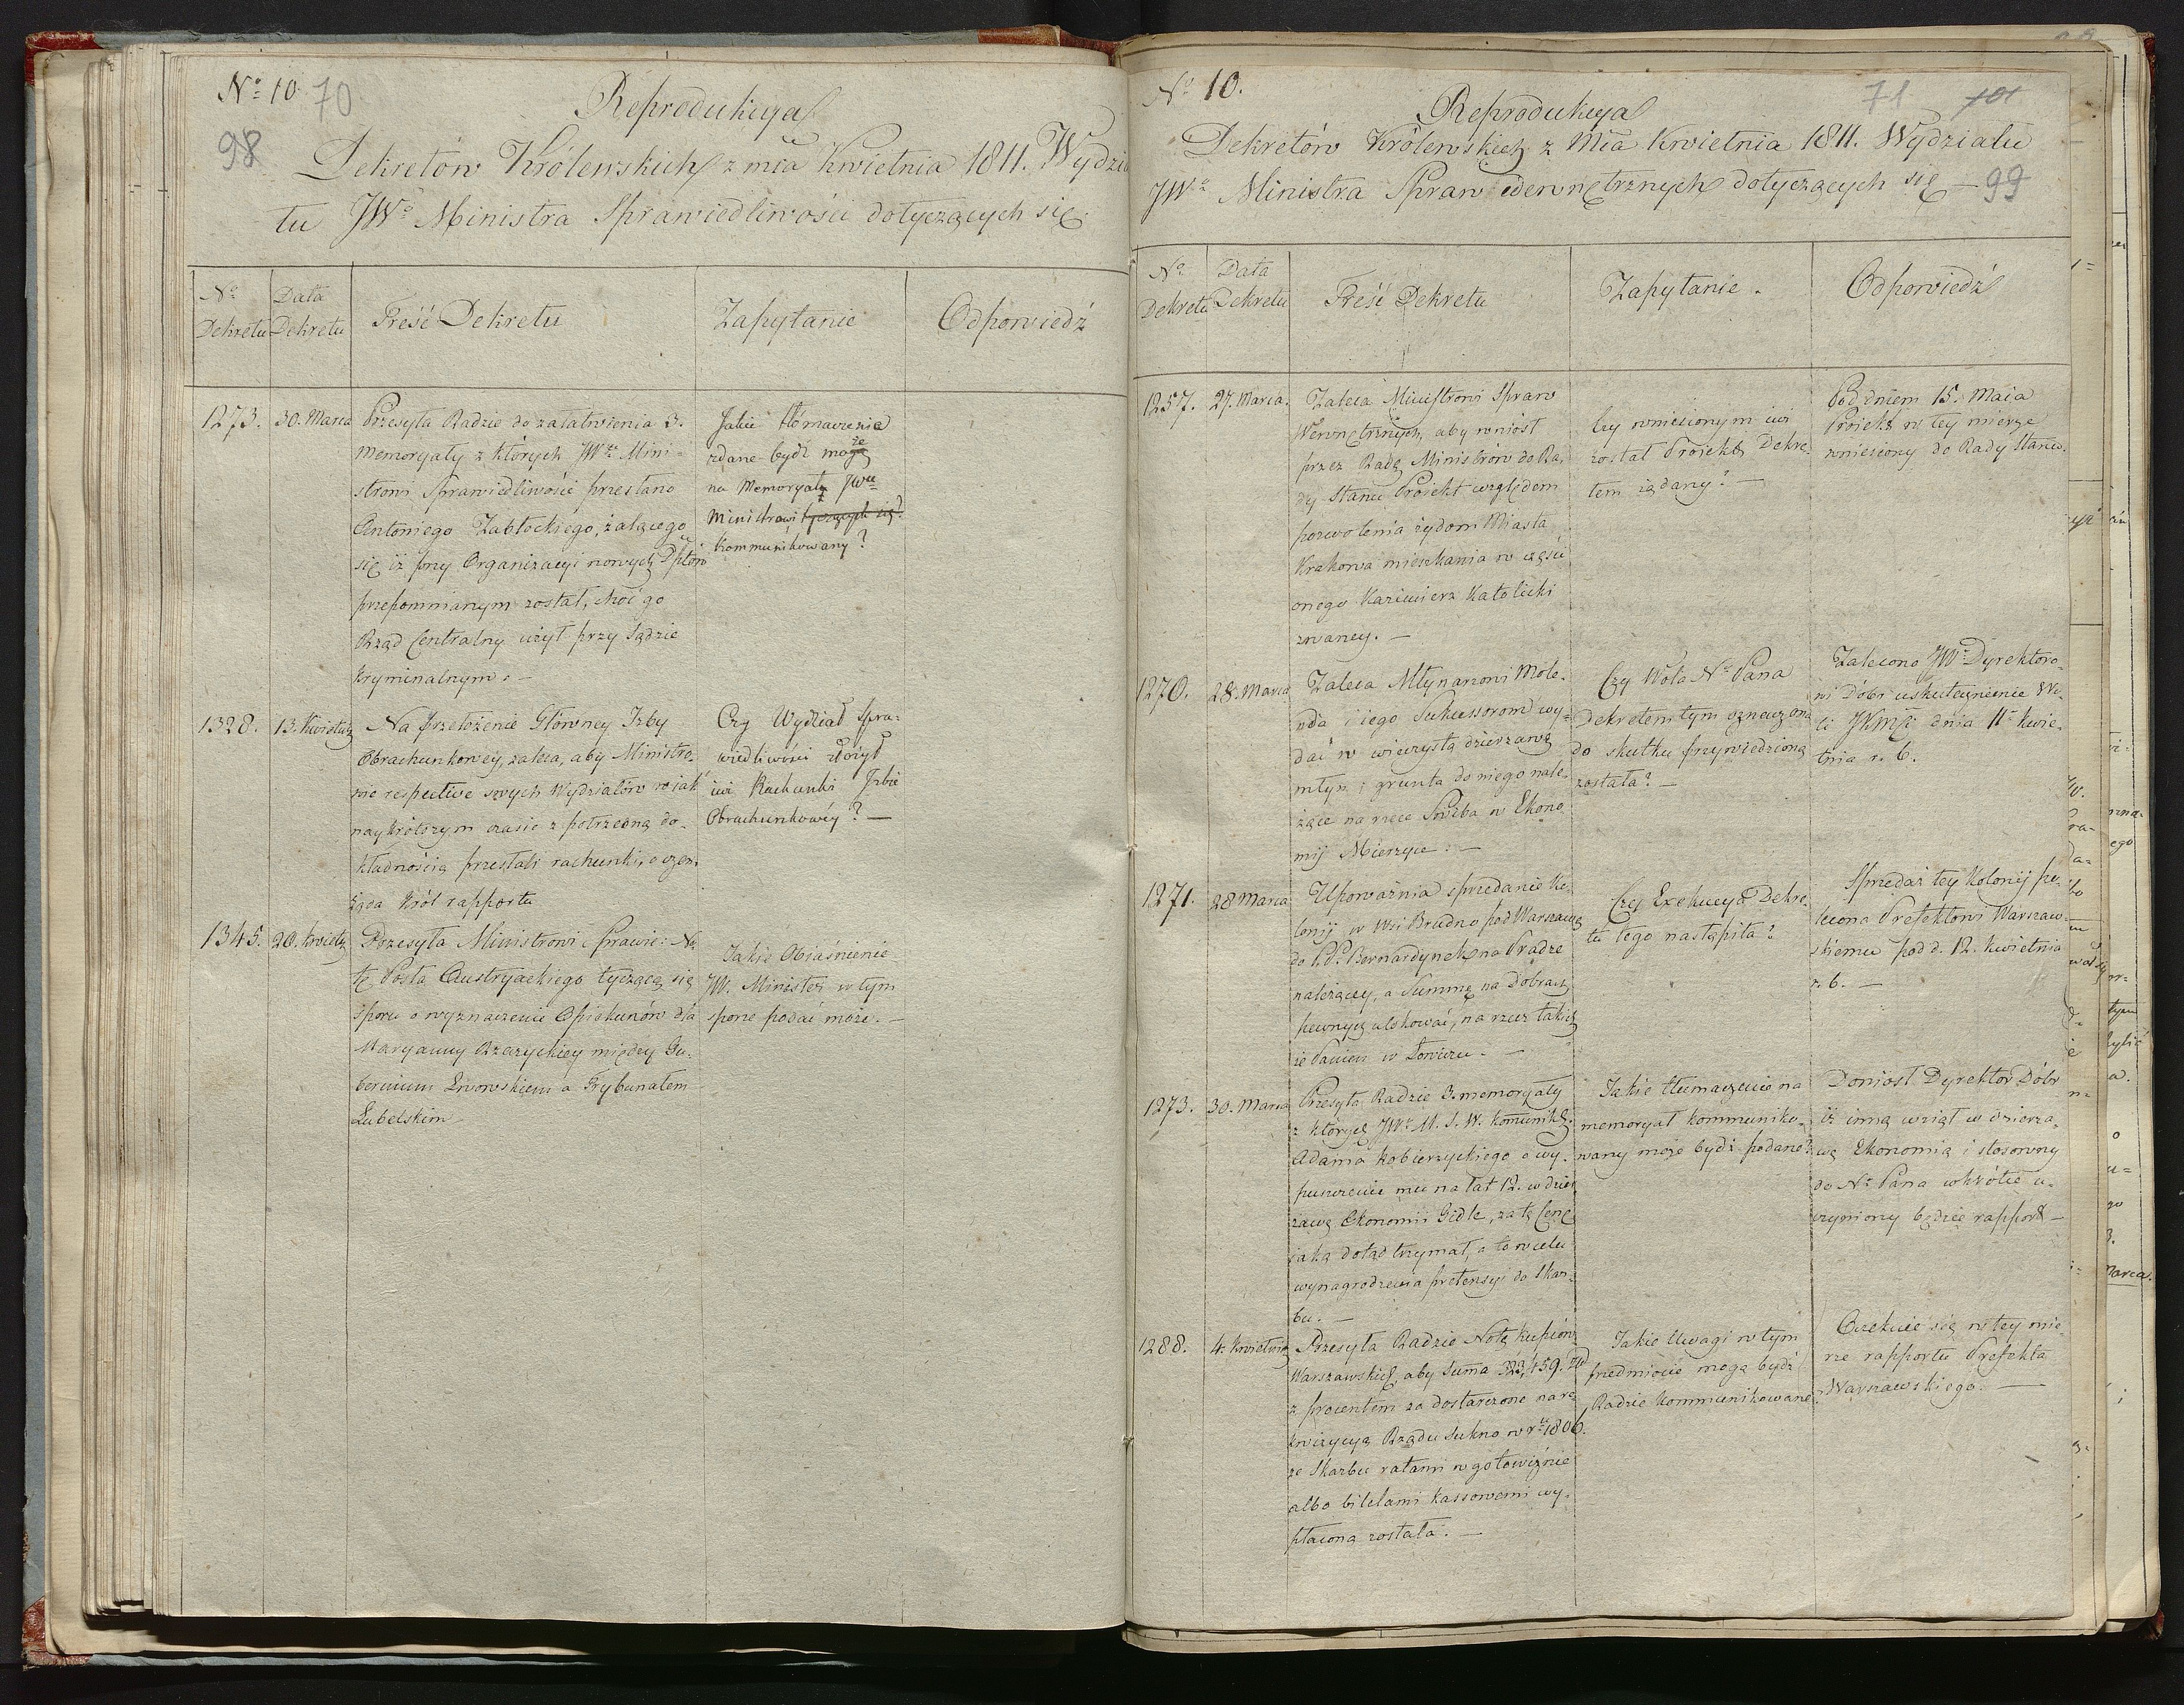 Nº 10. 70
98
Reprodukcya
Dekretów Królewskich z mca Kwietnia 1811. Wydzia
tu JWº Ministra Sprawiedliwości dotyczących się.
Nº Dekretu
Data Dekretu
Treść Dekretu
Zapytanie
Odpowiedź
1273.
30. Marca
Przesyła Radzie do załatwienia 3.
memoryały z których JWu Mini-
strowi Sprawiedliwości przesłano
Antoniego Zabłockiego, żalącego
się iż przy Organizacyi nowych Dpttów
przepomnianym został, choć go
Rząd Centralny użył przy Sądzie
Kryminalnym. -
Jakie tłómaczenia
zdane bydź może
na Memoryał JWu
Ministrowi tyczących się?
kommunikowany?
1328.
13. Kwietnia
Na przełożenie Główney Izby
Obrachunkowéy, zaleca, aby Ministro-
wie respective swych Wydziałów w jak
naykrótszym czasie z potrzebną do-
kładnością przesłali rachunki, o czem
żąda Król rapportu
Czy Wydział Spra-
wiedliwości złożył
iuż Rachunki Izbie
Obrachunkowéy? —
1345.
20. Kwietn.
Przesyła Ministrowi Sprawie: No-
tę Posła Austryackiego tyczącą się
sporu o wyznaczenie Opiekunów dla
Maryanny Rzeczyckiey między Gu-
bernium Lwowskiem a Trybunałem
Lubelskim
Jakie Obiaśnienie
JW. Minister w tym
sporze podać może. —
Nº 10.
71 101
Reprodukcya
Dekretów Królewskich z Mca Kwietnia 1811. Wydziału
JWº Ministra Spraw Wewnętrznych dotyczących się — 99
Nº Dekretu
Data Dekretu
Treść Dekretu
Zapytanie.
Odpowiedź
1257.
27. Marca.
Zaleca Ministrowi Spraw
Wewnętrznych, aby wniósł
przez Radę Ministrów do Ra-
dy Stanu Proiekt względem
pozwolenia żydom Miasta
Krakowa mieszkania w części
onego Kazimierz Katolicki
zwaney. —
Czy wniesionym iuż
został Proiekt Dekre-
tem żądany? —
Pod dniem 15. Maia
Proiekt w tey mierze
wniesiony do Rady Stanu.
1270.
28. Marca
Zaleca Młynarzowi Mole-
nda i iego Sukcessorom wy-
dać w wieczystą dzierzawę
młyn i grunta do niego nale-
żące na rzece Swidra w Ekono
mij Mierzyce. —
Czy Wola Nº Pana
Dekretem tym oznaczona
do skutku przywiedziona
została? —
Zalecono JWº Dyrektoro-
wi Dóbr uskutecznienie Wo-
li JKMci dnia 11º kwie-
tnia r. b.
1271.
28 Marca
Upoważnia sprzedanie Ko-
lonij w Wsi Brudno pod Warszawą
do P.P. Bernardynek na Pradze
należącey, a Summę na Dobrach
pewnych ulokować, na rzecz takich
że Panien w Łowiczu. —
Czy Exekucya Dekre-
tu tego nastąpiła?
Sprzedaż tey Kolonij po-
lecona Prefektowi Warszaw-
skiemu pod d. 12. Kwietnia
r. b. —
1273.
30. Marca
Przesyła Radzie 3. memoryały
z których JWu M. S. W. komunik:
Adama Kobierzyckiego o wy-
puszczenie mu na lat 12. w dzier
zawę Ekonomii Gidle, za tę Cenę
iaką dotąd trzymał, a to w celu
wynagrodzenia pretensyi do Skar-
bu. —
Jakie tłumaczenie na
memoryał kommuniko-
wany może bydź podane?
Doniosł Dyrektor Dóbr
iż inną wziął w dzierza-
wę Ekonomią i stosowny
do Nº Pana wkrótce u-
czyniony będzie rapport —
1288.
4. Kwietnia
Przesyła Radzie Notę kupców
Warszawskich, aby Suma 323,459. Zł
z procentem za dostarczone na re-
kwizycyą Rządu Sukno w r. 1806.
ze Skarbu ratami w gotowiźnie
albo biletami kassowemi wy-
płacona została. —
Jakie Uwagi w tym
przedmiocie mogą bydź
Radzie kommunikowane?
Oczekuie się w tey mie-
rze rapportu Prefekta
Warszawskiego. —